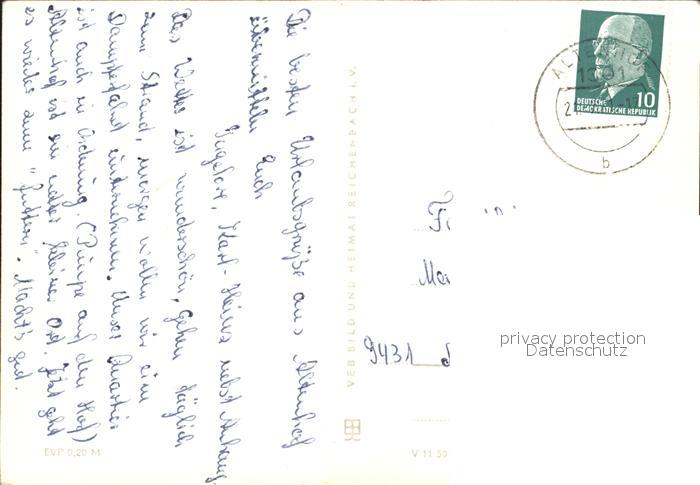 Die besten Urlaubsgrüße aus Altenhof
übermitteln Euch
Ingelore, Karl-Heinz nebst Anhang.
Das Wetter ist wunderschön, gehen täglich
zum Strand, morgen wollen wir eine
Dampferfahrt unternehmen. Unser Quartier
ist auch in Ordnung. (Pumpe auf dem Hof)
Altenhof ist ein netter kleiner Ort. Jetzt geht
es wieder zum "Futtern". Macht's gut.
EVP 0,20 M
VEB BILD UND HEIMAT REICHENBACH I. V.
V 11 50
ALTENHOF
1301
b
10
DEUTSCHE
DEMOKRATISCHE REPUBLIK
9431
privacy protection
Datenschutz